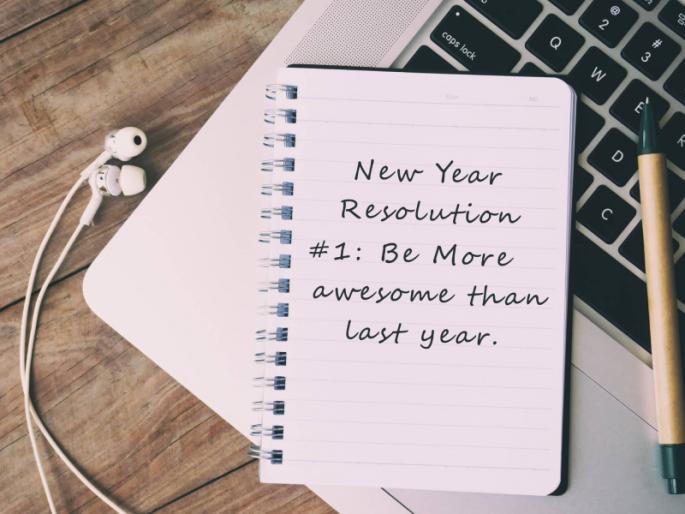 New Year
Resolution
#1: Be More
awesome than
last year.
caps lock
@
2
#
3
Q
W
E
D
C